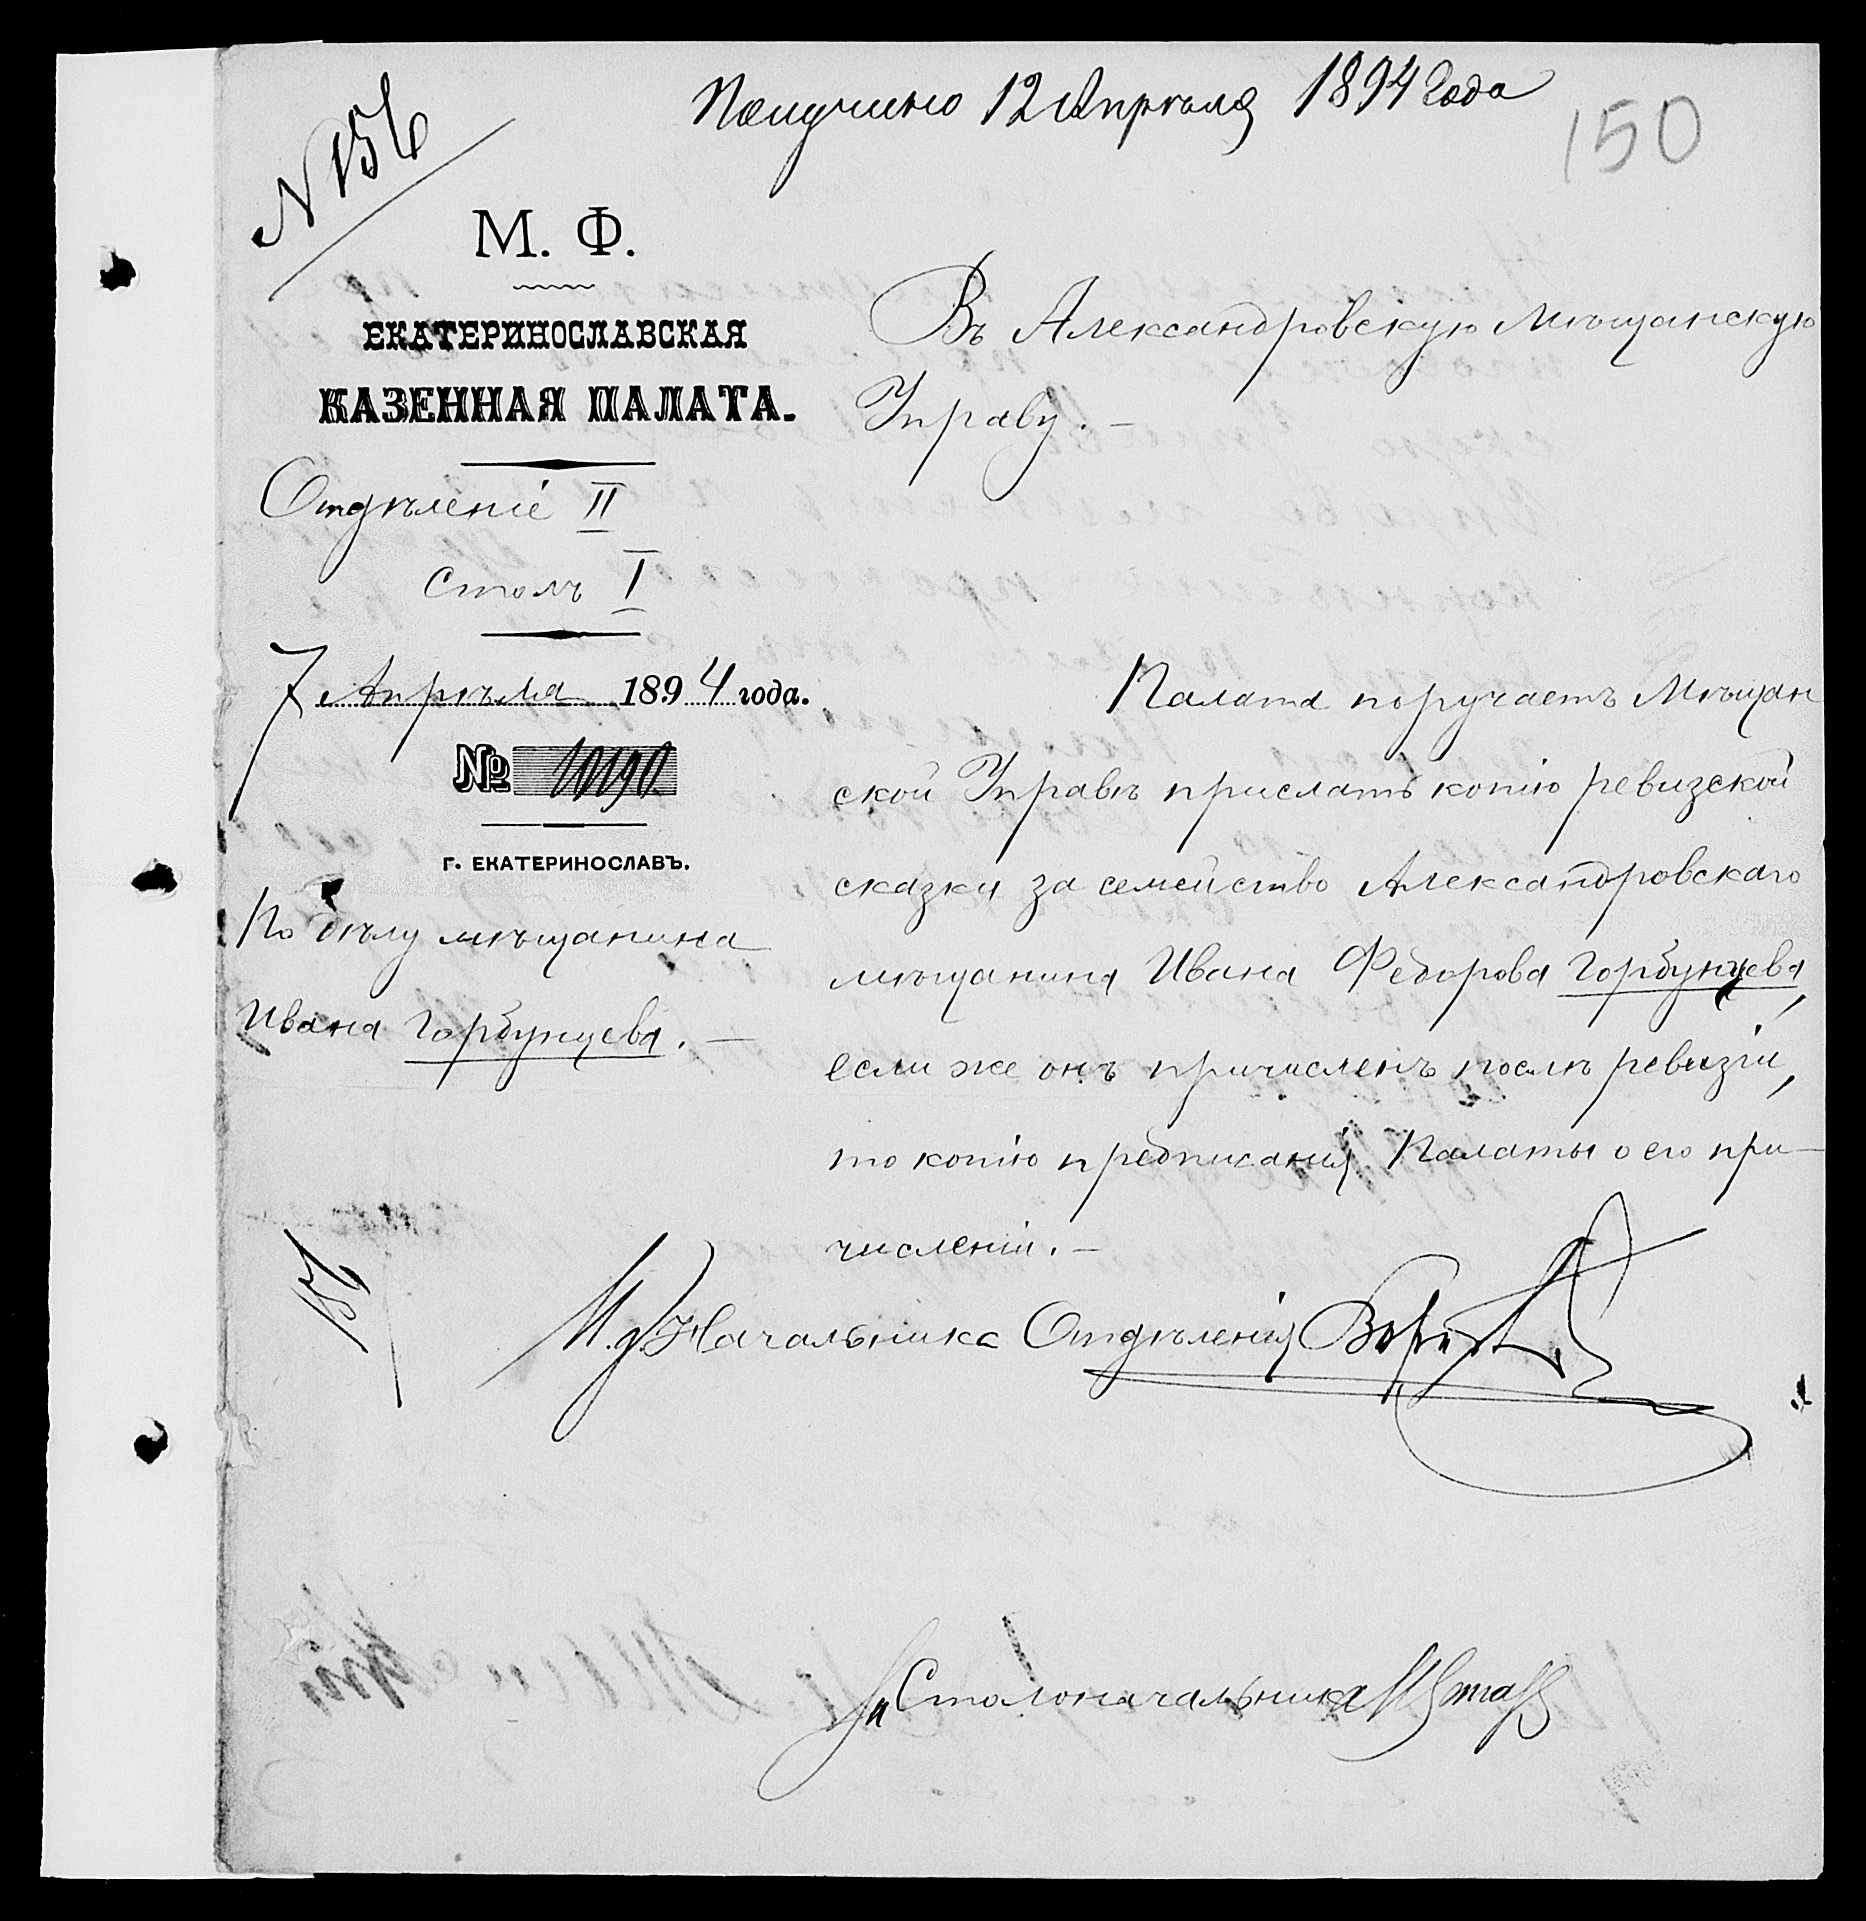 Получено 12 Апрѣля 1894 года
150
N 156
М. Ф.
ЕКАТЕРИНОСЛАВСКАЯ
КАЗЕННАЯ ПАЛАТА.
Отдѣленіе II
Столъ I
7 Апрѣля 1894 года.
№ 10190
Г. ЕКАТЕРИНОСЛАВЪ.
По дѣлу мѣщанина
Ивана Горбунцева. —
Въ Александровскую Мѣщанскую
Управу. —
Палата поручаетъ Мѣщан
ской Управѣ прислать копію ревизской
сказки за семейство Александровскаго
мѣщанина Ивана Федорова Горбунцева,
если же онъ причисленъ послѣ ревизіи,
то копію предписанія Палаты о его при-
численіи. —
156
И. д. Начальника Отдѣленія
Столоначальника